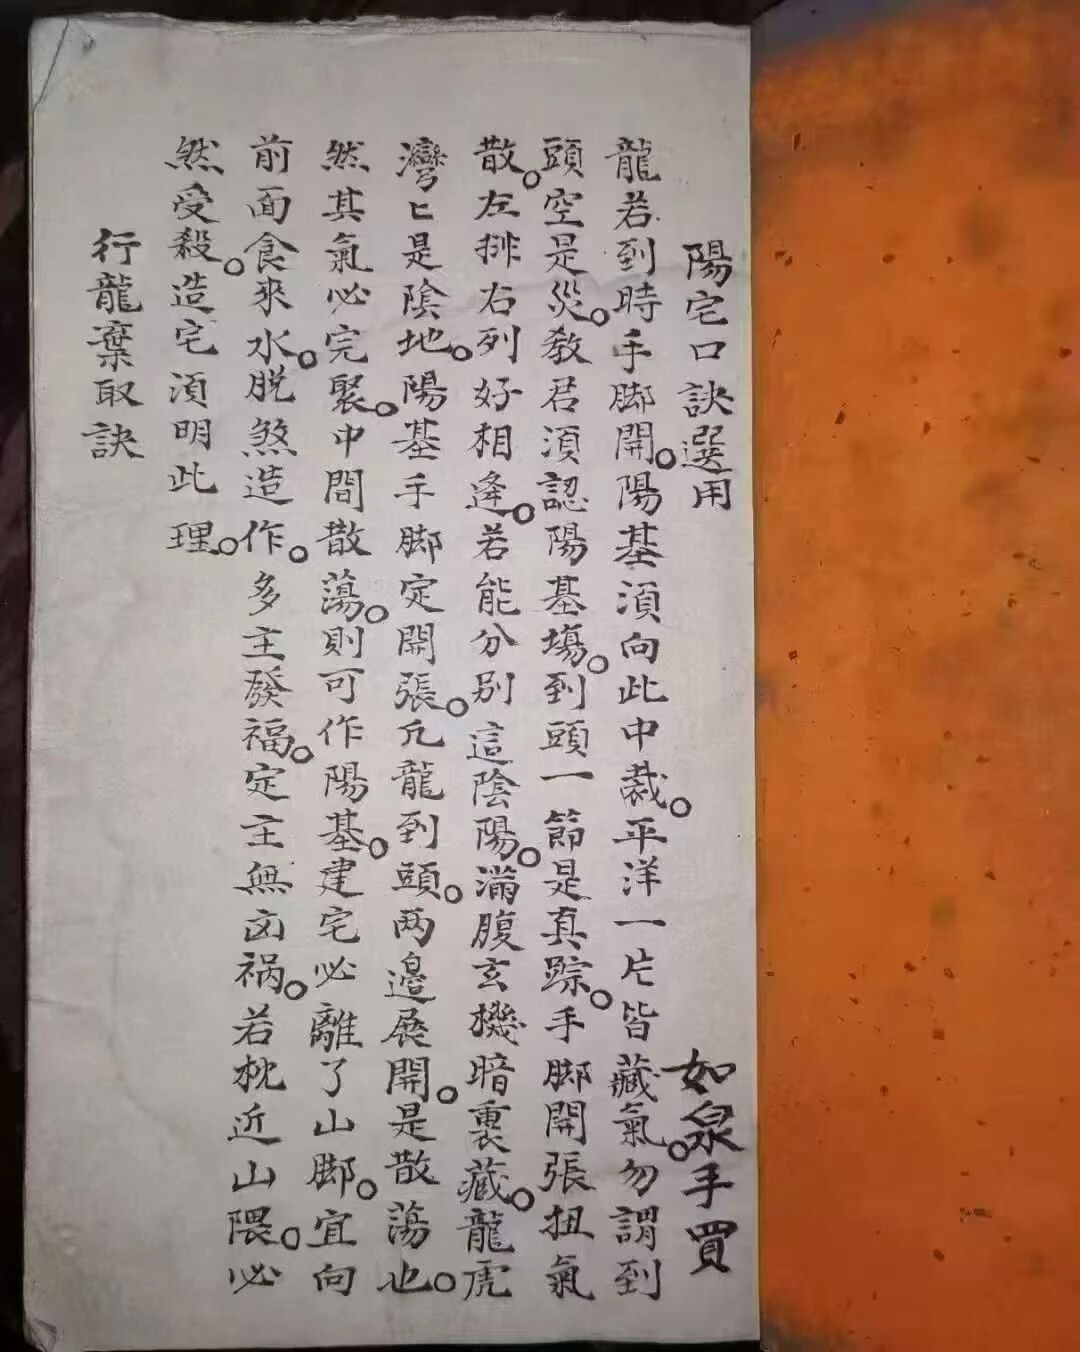 陽宅口訣選用
如泉手買
龍若到時手脚開。陽基湏向此中裁。平洋一片皆藏氣。勿謂到
頭空是災。教君湏認陽基塲。到頭一節是真踪。手脚開張扭氣
散。左排右列好相逄。若能分別這陰陽。滿腹玄機暗裏藏。龍虎
灣匕是陰地。陽基手脚定開張。凡龍到頭。两邉展開。是散蕩也。
然其氣必完聚。中間散蕩。則可作陽基。建宅必離了山脚。宜向
前面食來水。脱煞造作。多主發福。定主無凶禍。若枕近山隈。必
然受殺。造宅湏明此理。
行龍棄取訣